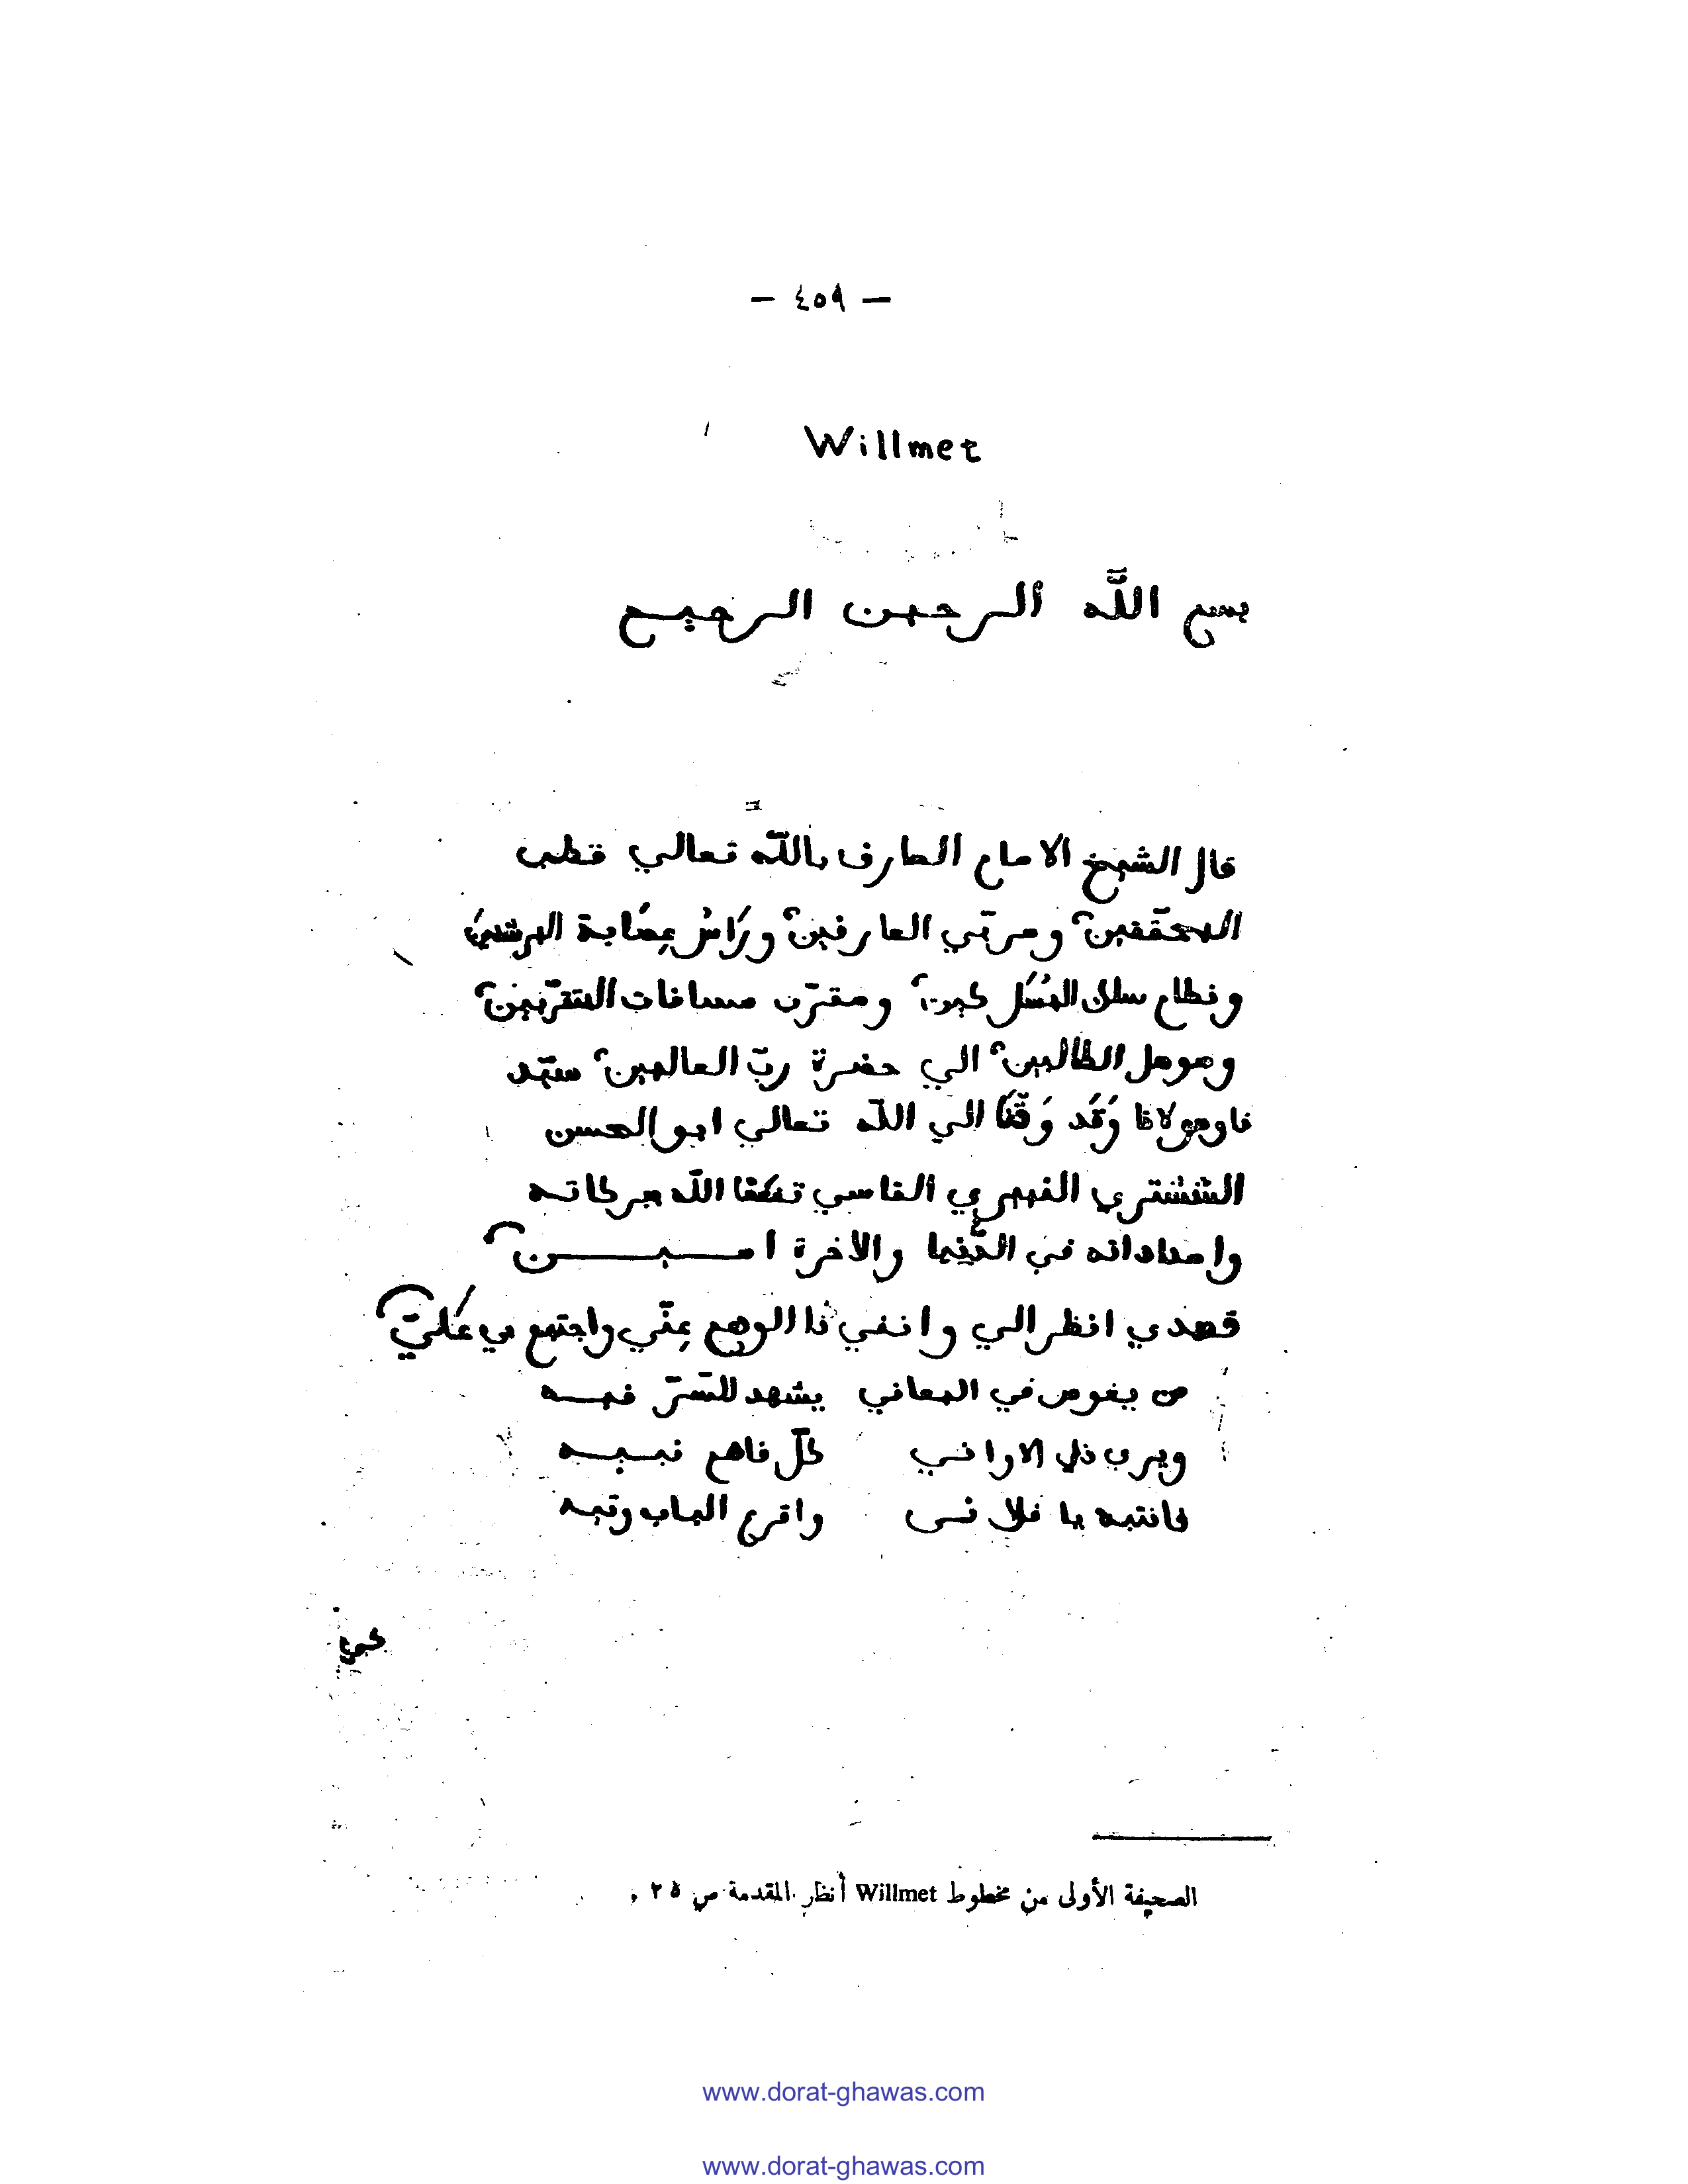 — ٤٥٩ —
Willmet
بسم اللّه الرحمن الرحيم
قال الشيخ الامام العارف باللّه تعالي قطب
المحقّقين ومربّي العارفين ورَاسُ عِصَابة المرشدين
ونظام سلك ومقرّب مسافات المتقرّبين
وموصل الطالبين الي حضرة ربّ العالمين سيّد
ناومولانا وَقَد وَقّنَا الي اللّه تعالي ابو الحسن
الششتري الفهري الفاسي تفعنا اللّه ببركاته
وامداداته في الدّنيا والاخرة امين
قصدي انظر الي وانفي ذا الوهم عِنّي واجتمع بي عَليّ
من يغوص في المعاني يشهد للسّرّ فيه
ويرى ذلي الاواني كلّ فاهم نبيه
فانتبه يا فلاني واقرع الباب وتيه
كبي
الصحيفة الأولى من مخطوط Willmet أنظر المقدمة ص ٢٥ .
www.dorat-ghawas.com
www.dorat-ghawas.com